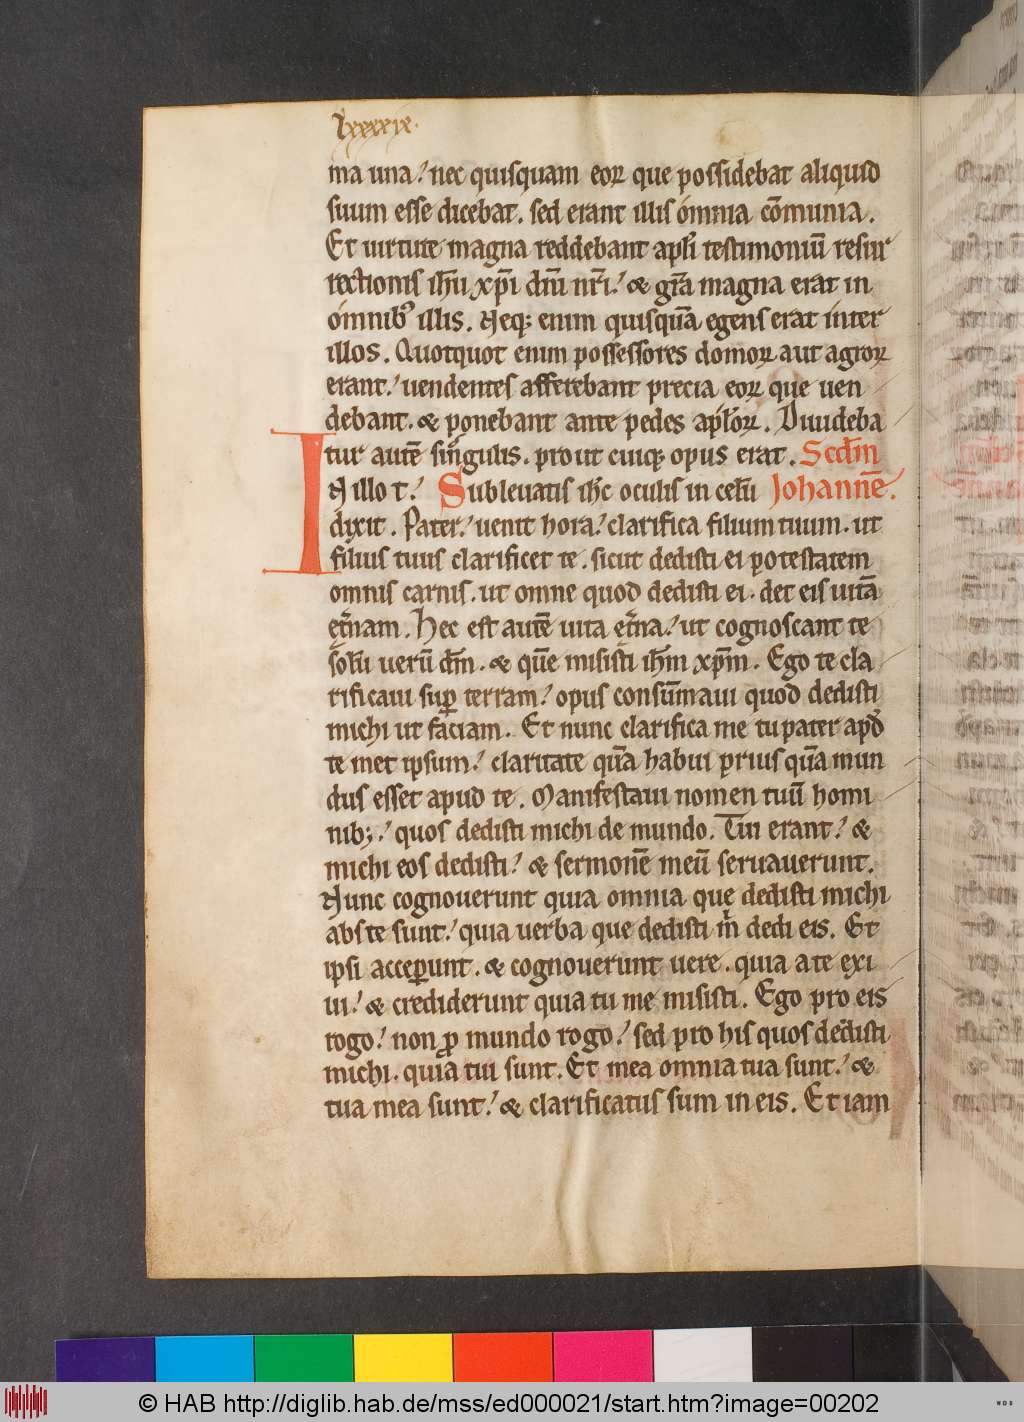 lxxxxix.
ma una.' nec quisquam eoꝝ que possidebat aliquid
suum esse dicebat. sed erant illis omnia cōmunia.
Et uirtute magna reddebant apl̄i testimoniū resur
rectionis ih̄u xp̄i dn̄i nr̄i.' & gr̄a magna erat in
omnibꝰ illis. Neqꝫ enim quisquā egens erat inter
illos. Quotquot enim possessores domoꝝ aut agroꝝ
erant.' uendentes afferebant precia eoꝝ que uen
debant. & ponebant ante pedes apl̄oꝝ. Diuideba
tur autē singulis. prout cuiqꝫ opus erat. Scd̄m
IN illo t.' Subleuatis ih̄c oculis in celū Johannē.
dixit. Pater.' uenit hora.' clarifica filium tuum. ut
filius tuus clarificet te. sicut dedisti ei potestatem
omnis carnis. ut omne quod dedisti ei. det eis uitā
et̄nam. Hec est autē uita et̄na.' ut cognoscant te
solū uerū dm̄. & quē misisti ih̄m xp̄m. Ego te cla
rificaui suꝑ terram.' opus consūmaui quod dedisti
michi ut faciam. Et nunc clarifica me tu pater apd̓
te met ipsum.' claritate quā habui prius quā mun
dus esset apud te. Manifestaui nomen tuū homi
nibꝫ.' quos dedisti michi de mundo. Tui erant.' &
michi eos dedisti.' & sermonē meū seruauerunt.
Nunc cognouerunt quia omnia quę dedisti michi
abs te sunt.' quia uerba que dedisti m̄ dedi eis. Et
ipsi acceꝑunt. & cognouerunt uere. quia a te exi
ui.' & crediderunt quia tu me misisti. Ego pro eis
rogo.' non ꝓ mundo rogo.' sed pro his quos dedisti
michi. quia tui sunt. Et mea omnia tua sunt.' &
tua mea sunt.' & clarificatus sum in eis. Et iam
© HAB http://diglib.hab.de/mss/ed000021/start.htm?image=00202